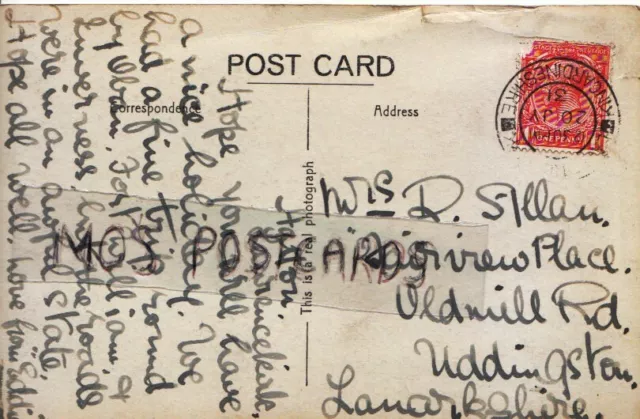 POST CARD
Correspondence
Address
This is a real photograph
Station.
Laurencekirk.
Hope you will have
a nice holiday. We
had a fine trip round
by Oban, Fort William &
Inverness. The roads
were in an awful state.
Hope all well. love from Eddie
Mrs D. S. Allan.
Fairview Place.
Oldmill Rd.
Uddingston.
Lanarkshire.
KINCARDINESHIRE
20 JY
31
MGS POSTCARDS